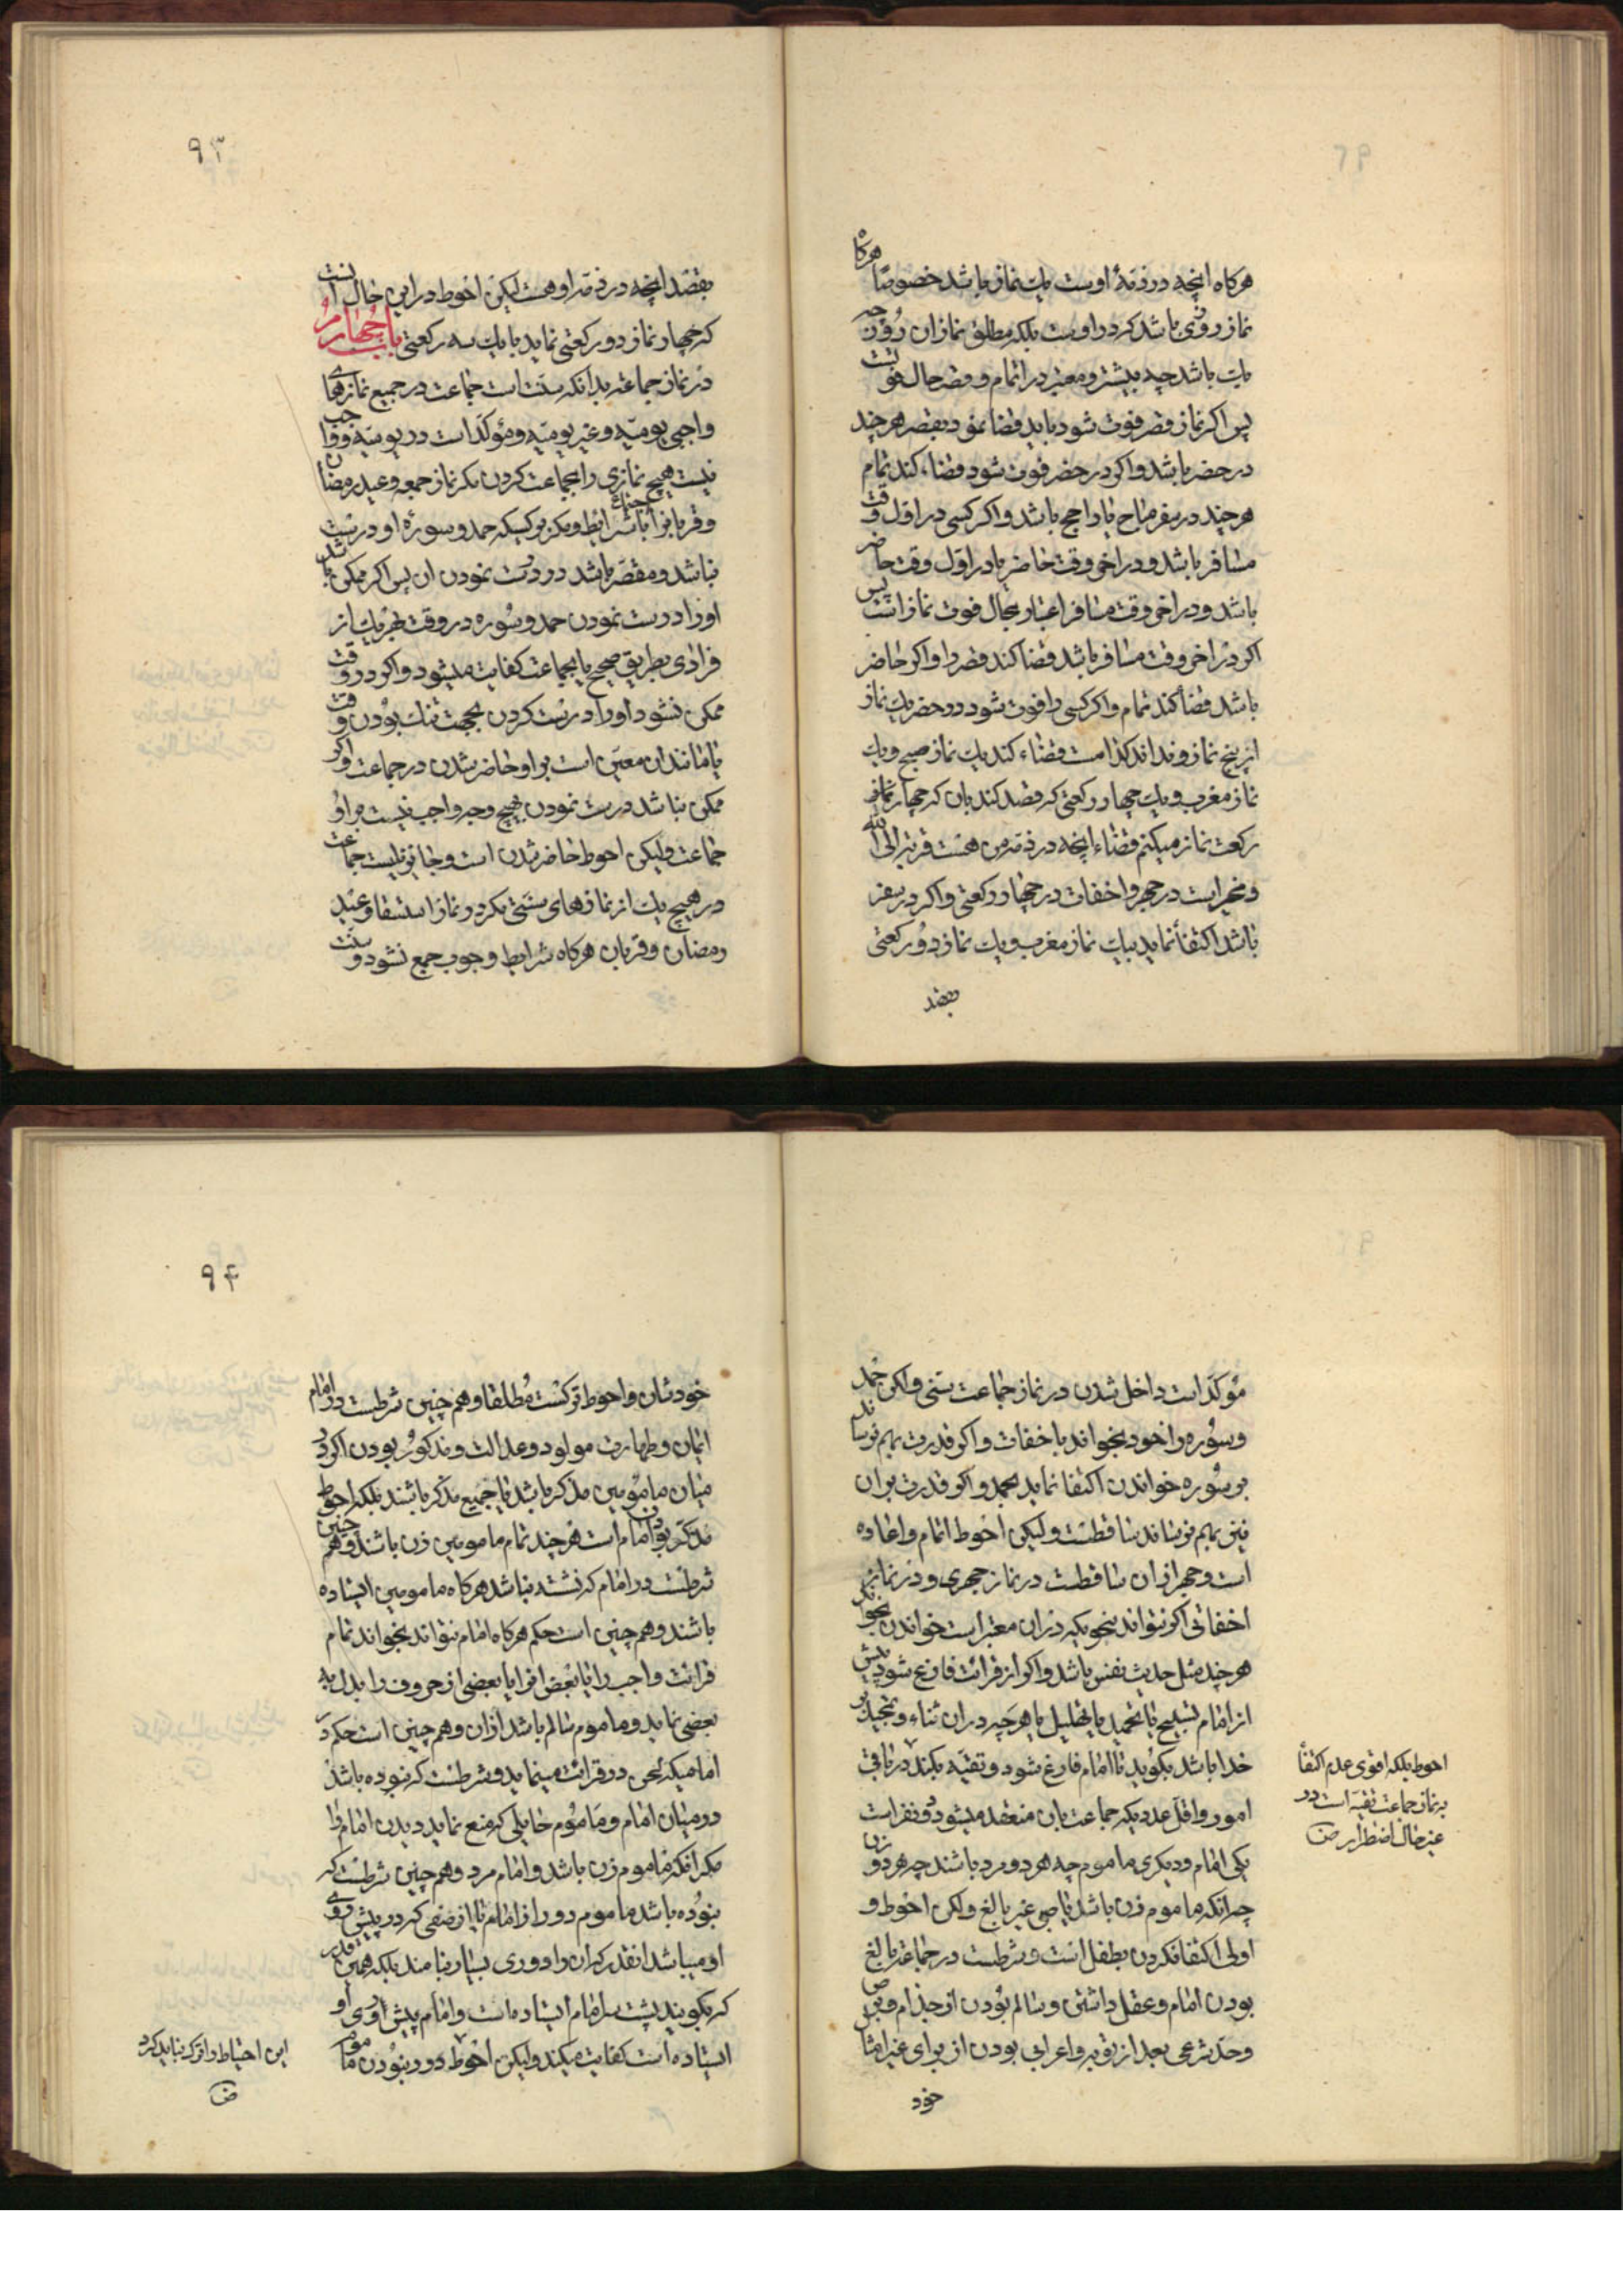 هرکاه انچه در ذمهٔ اوست یك نماز باشد خصوصًا هرکاه
نماز روزی باشد که در اوست بلکه مطلق نماز ان روز چه
یك باشد چه بیشتر و معتبر در اتمام و قصر حال فوتست
پس اکر نماز قصر فوت شود باید قضا نمود بقصر هر چند
در حضر باشد و اکر در حضر فوت شود قضاء کند تمام
هر چند در سفر مباح یا واجب باشد و اکر کسی در اول وقت
مسافر باشد و در اخر وقت حاضر یا در اول وقت حاضر
باشد و در اخر وقت مسافر اعتبار بحال فوت نماز است پس
اکر در اخر وقت مسافر باشد قضا کند قصر را و اکر حاضر
باشد قضا کند تمام و اکر کسی را فوت شود در حضر یك نماز
از پنج نماز و نداند کدامست قضاء کند یك نماز صبح و یك
نماز مغرب و یك چهار رکعتی که قصد کند بان که چهار
رکعت نماز میکنم قضاء انچه در ذمه من هست قربة الی الله
و مخیر است در جهر و اخفات در چهار رکعتی و اکر در سفر
باشد اکتفا نماید بیك نماز مغرب و یك نماز دو رکعتی
بقصد
۹۳
بقصد انچه در ذمه او هست لیکن احوط در این حال انست
که چهار نماز دو رکعتی نماید با یك سه رکعتی باب چهارم
در نماز جماعت بدانکه سنت است جماعت در جمیع نمازهای
واجبی یومیه و غیر یومیه و مؤکد است در یومیه و واجب
نیست هیچ نمازی را بجماعت کردن مکر نماز جمعه و عید رمضان
و قربانرا با اجتماع شرایط و مکر بر کسیکه حمد و سورهٔ او درست
نباشد و مقصر باشد در درست نمودن ان پس اکر ممکن باشد
او را درست نمودن حمد و سوره در وقت بهر یك از
فرادی بطریق صحیح یا بجماعت کفایت میشود و اکر در وقت
ممکن نشود او را درست کردن بجهت تنك بودن وقت
یا مانند ان معین است بر او حاضر شدن در جماعت و اکر
ممکن نباشد درست نمودن بهیچ وجه واجب نیست بر او
جماعت ولیکن احوط حاضر شدن است و جایز نیست جماعت
در هیچ یك از نمازهای سنتی مکر در نماز استسقا و عید
رمضان و قربان هرکاه شرایط وجوب جمع نشود و سنت
مؤکد است داخل شدن در نماز جماعت سنی ولکن حمد
و سوره را خود بخواند باخفات و اکر قدرت بهم نرساند
بر سوره خواندن اکتفا نماید بحمد و اکر قدرت بر ان
نیز بهم نرساند ساقطست ولیکن احوط اتمام و اعاده
است و جهر از ان ساقطست در نماز جهری و در نماز
اخفاتی اکر نتواند بنحویکه در ان معتبر است خواندن بخواند
هر چند مثل حدیث نفس باشد و اکر از قرائت فارغ شود پیش
از امام تسبیح یا تحمید یا تهلیل یا هر چه در ان ثناء و تمجید
خدا باشد بکوید تا امام فارغ شود و تقیه بکند در باقی
امور و اقل عددیکه جماعت بان منعقد میشود دو نفر است
یکی امام و دیکری ماموم چه هر دو مرد باشند چه هر دو زن
چه انکه ماموم زن باشد یا صبی غیر بالغ ولکن احوط و
اولی اکتفا نکردن بطفل است و شرطست در جماعت بالغ
بودن امام و عقل داشتن و سالم بودن از جذام و برص
و حد شرعی بعد از توبه و اعرابی بودن از برای غیر امثال
خود
احوط بلکه اقوی عدم اکتفا
به نماز جماعت تقیه است در
غیر حال اضطرار ض
۹۴
خودشان و احوط ترکست مطلقا و هم چنین شرطست در امام
ایمان و طهارت مولود و عدالت و مذکور بودن اکر در
میان مامومین مذکر باشد یا جمیع مذکر باشند بلکه احوط
مذکر بودن امام است هر چند تمام مامومین زن باشند و هم چنین
شرطست در امام که نشسته نباشد هرکاه مامومین ایستاده
باشند و هم چنین است حکم هرکاه امام نتواند بخواند تمام
قرائت واجب را یا بعض انرا یا بعضی از حروف را بدل به
بعضی نماید و ماموم سالم باشد از ان و هم چنین است حکم در
امامیکه لحن در قرائت مینماید و شرطست که نبوده باشد
در میان امام و ماموم حایلی که منع نماید دیدن امام را
مکر انکه ماموم زن باشد و امام مرد و هم چنین شرطست که
نبوده باشد ماموم دور از امام یا از صفی که در پیش روی
او میباشد انقدر که ان را دوری بسیار نامند بلکه همین قدر
که بکویند پشت سر امام ایستاده است و امام پیش روی او
ایستاده است کفایت میکند ولیکن احوط دور نبودن ماموم
این احتیاط را ترك نباید کرد
ض